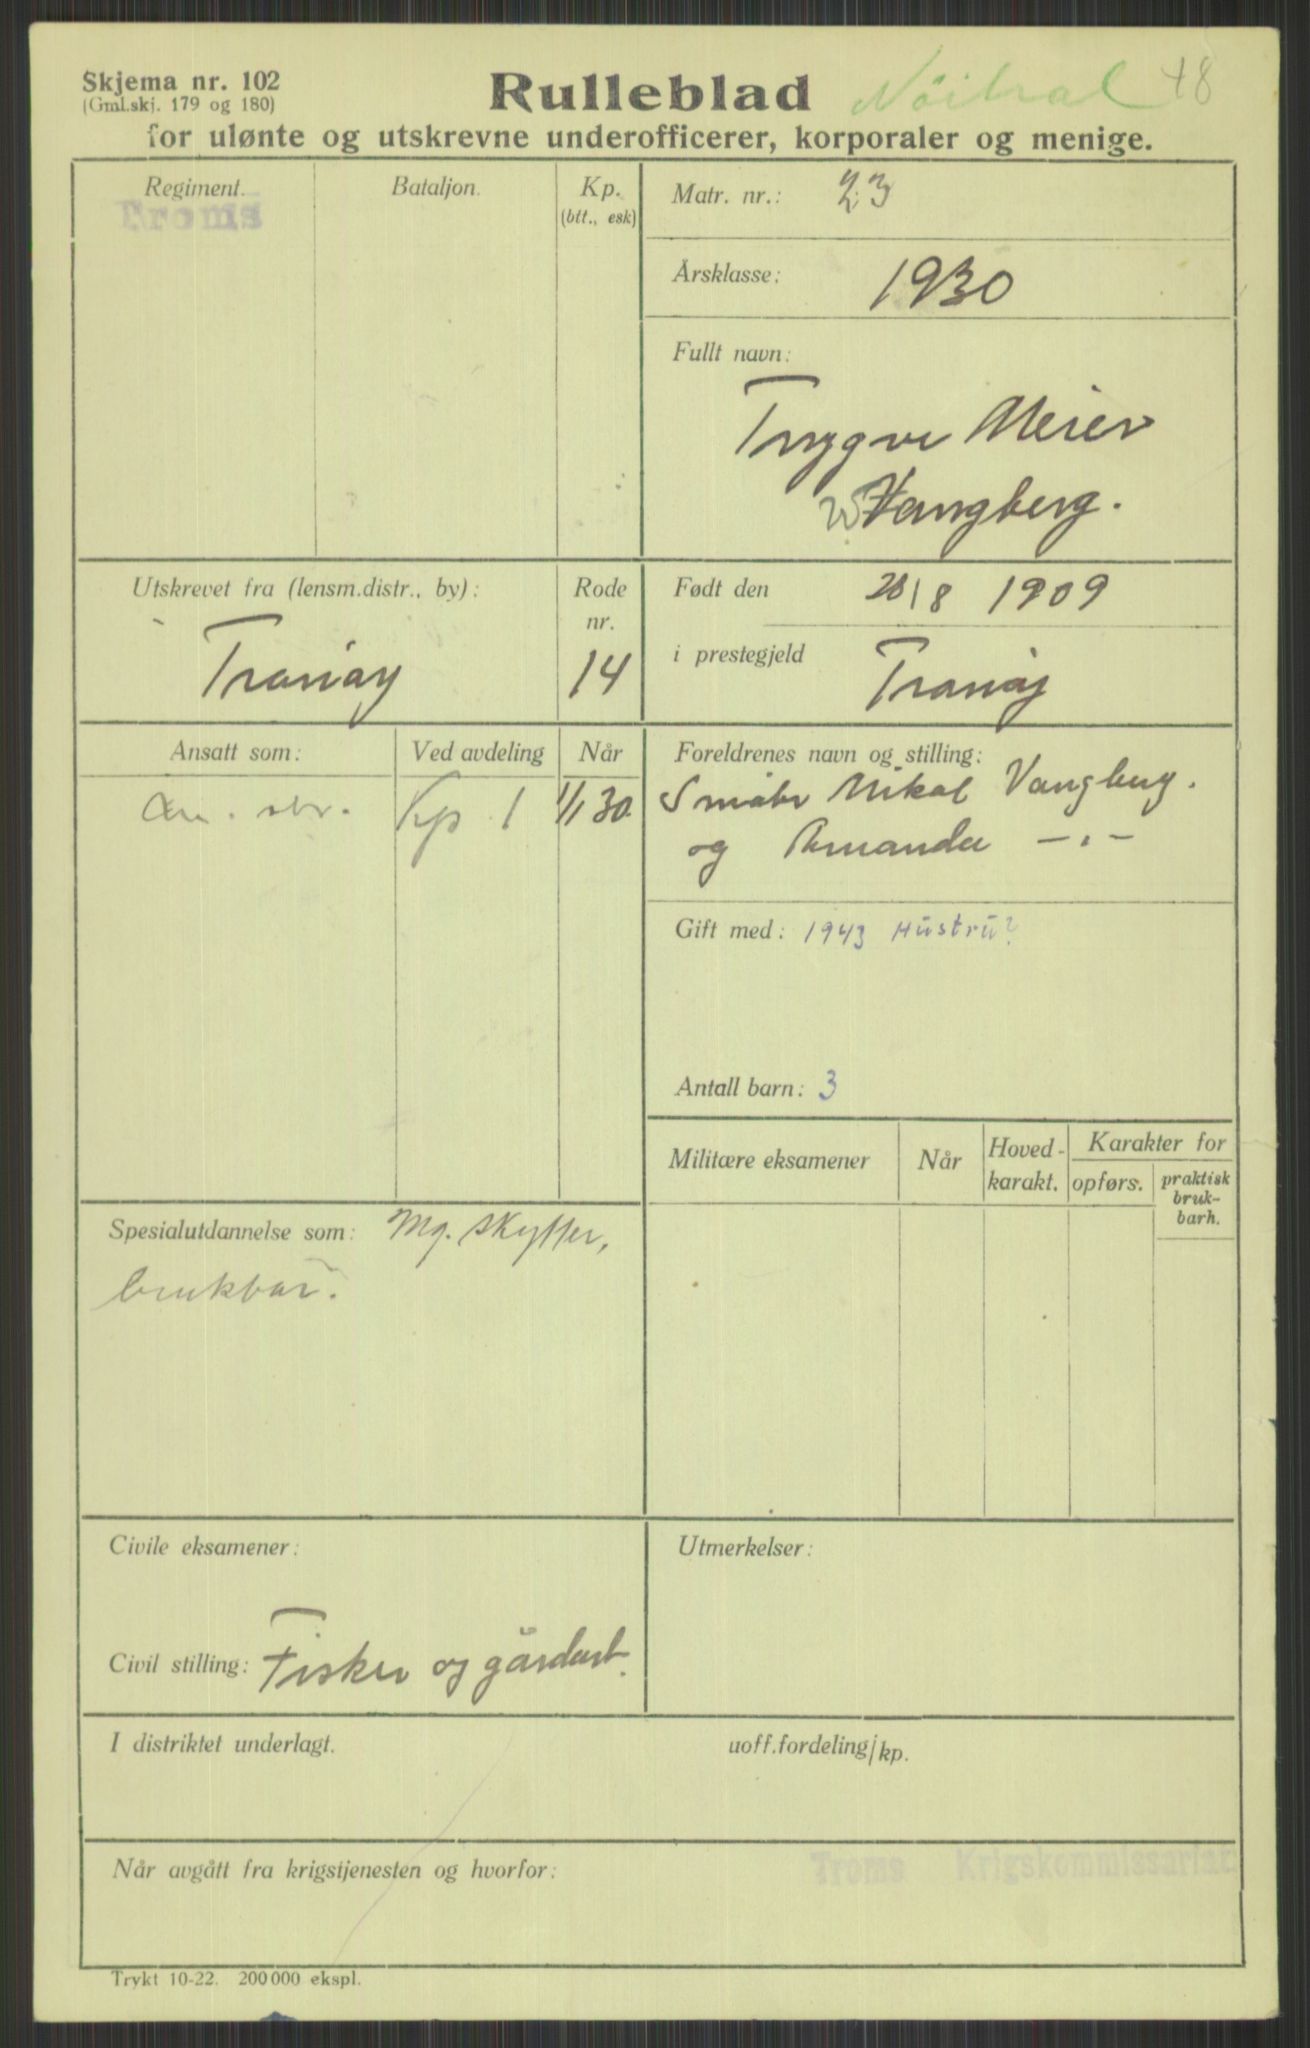 Skjema nr. 102
(Gml.skj. 179 og 180)
Rulleblad
Nöitral 48
for ulønte og utskrevne underofficerer, korporaler og menige.
Regiment.
Troms
Bataljon.
Kp.
(btt., esk)
Matr. nr.: 23
Årsklasse: 1930
Fullt navn:
Trygve Meier
Vangberg.
Utskrevet fra (lensm.distr., by):
Tranöy
Rode
nr.
14
Født den 28/8 1909
i prestegjeld Tranöy
Ansatt som:
Ved avdeling
Kp 1
Når
1/1 30.
Foreldrenes navn og stilling:
Småbr Mikal Vangberg.
og Amanda —.—
Gift med: 1943 Hustru?
Antall barn: 3
Militære eksamener
Når
Hoved-
karakt.
Karakter for
opførs.
praktisk
bruk-
barh.
Spesialutdannelse som: Mg. skytter,
brukbar.
Civile eksamener:
Utmerkelser:
Civil stilling: Fisker og gårdarb.
I distriktet underlagt.
uoff.fordeling/kp.
Når avgått fra krigstjenesten og hvorfor:
Troms Krigskommissariat
Trykt 10-22. 200 000 ekspl.